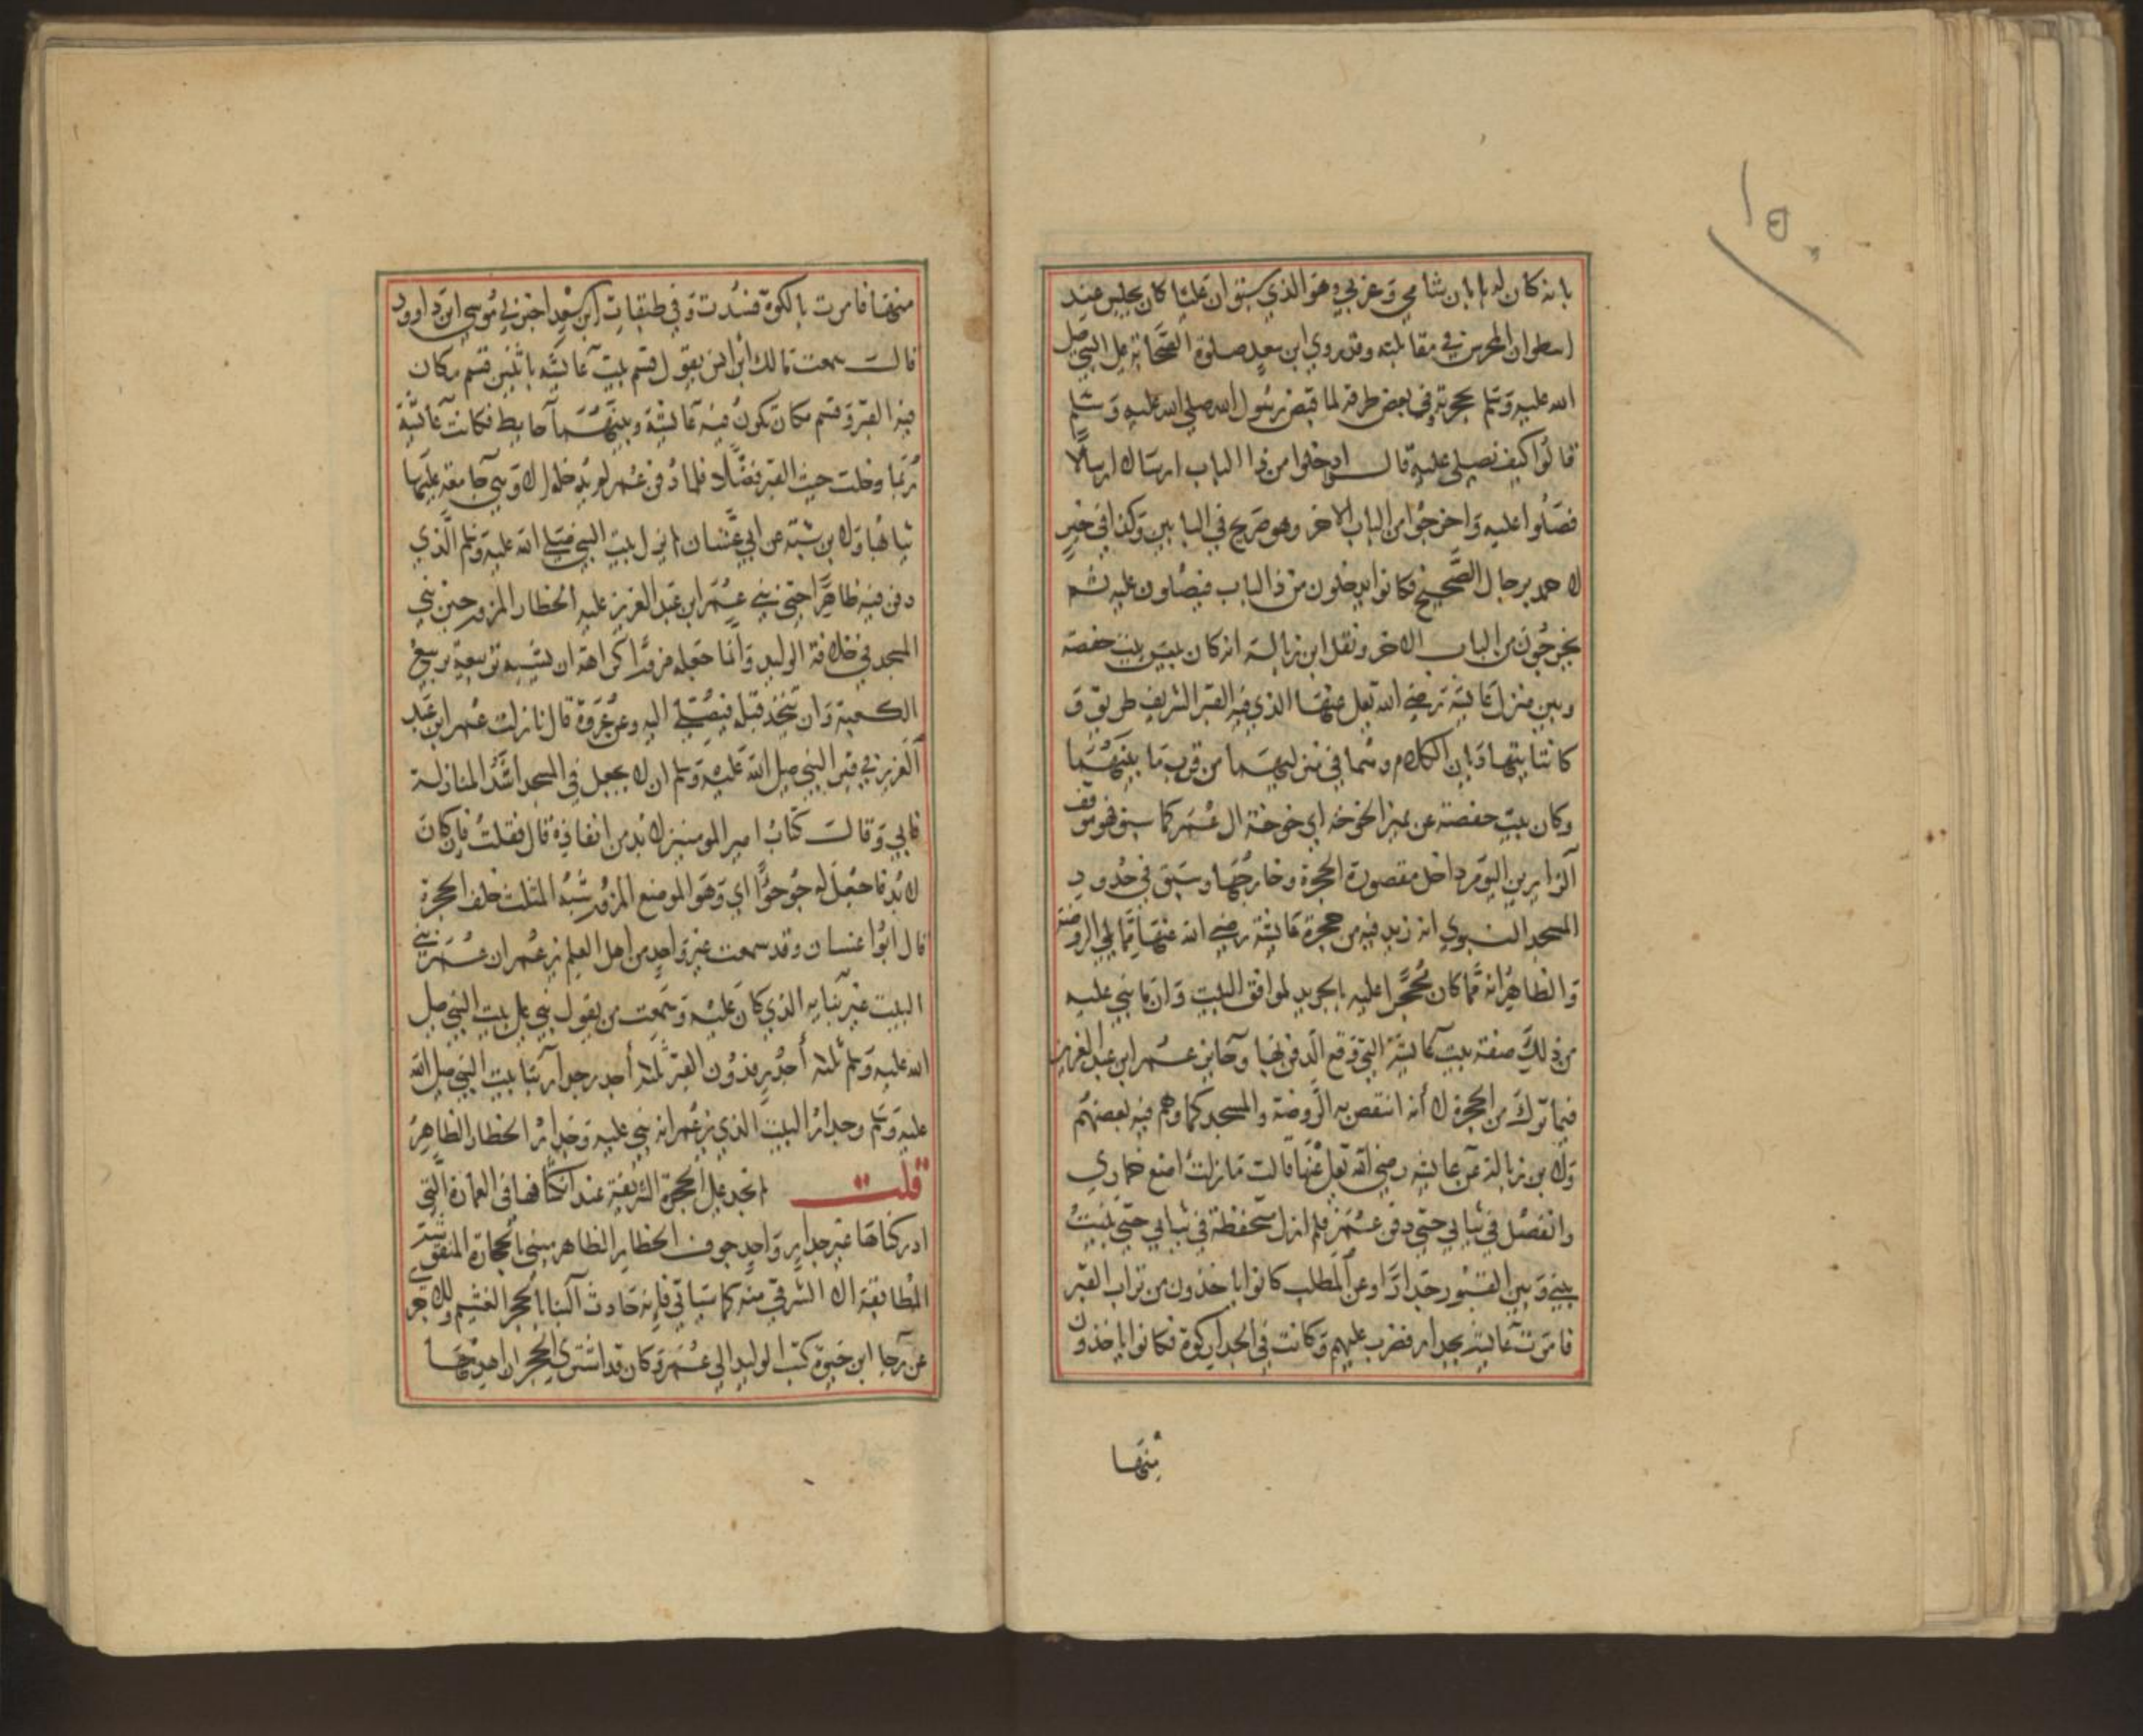 بانه كان له بابان شامي وغربي وهو الذي سبق ان عليا كان يجلس عند
اسطوان المحرس في مقابلته وقد روي ابن سعد صلوة الصحابة على النبي صلى
الله عليه وسلم بحجرته في بعض طرقه لما قبض رسول الله صلى الله عليه وسلم
قالوا كيف نصلي عليه قال ادخلوا من ذا الباب ارسالا ارسالا
فصلوا عليه واخرجوا من الباب الاخر وهو صريح في البابين وكذا في خبر
لاحمد برجال الصحيح فكانوا يدخلون من ذا الباب فيصلون عليه ثم
يخرجون من الباب الاخر ونقل ابن زبالة انه كان بين بيت حفصة
وبين منزل عائشة رضي الله تعلى عنها الذي فيه القبر الشريف طريق و
كانتا يتهاديان الكلام وهما في منزليهما من قرب ما بينهما
وكان بيت حفصة عن يمين الخوخة اي خوخة ال عمر كما سبق فهو موقف
الزايرين اليوم داخل مقصورة الحجرة وخارجها وسبق في حدود
المسجد النبوي انه زيد فيه من حجرة عايشة رضي الله عنها مما يلي الروضة
والظاهر انه مما كان محجرا عليه بالجريد لموافق البيت وان ما بني عليه
من ذلك صفة بيت عائشة التي وقع الدفن بها وحايز عمر ابن عبد العزيز
فيما ترك من الحجرة لا أنه انتقص به الروضة والمسجد كما وهم فيه بعضهم
ولابن زبالة عن عايشه رضي الله تعلى عنها قالت ما زلت اضع خماري
واتفضل في ثيابي حتى دفن عمر فلم ازل متحفظة في ثيابي حتى بنيت
بيني وبين القبور جدارا وعن المطلب كانوا ياخذون من تراب القبر
فامرت عايشة بجدار فضرب عليهم وكانت في الجدار كوة فكانوا ياخذون
منها
منها فامرت بالكوة فسدت وفي طبقات ابن سعد اخبرني موسى ابن داوود
قالت سمعت مالك ابن انس يقول قسم بيت عائشه باثنين قسم كان
فيه القبر وقسم كان تكون فيه عائشة وبينهما حايط فكانت عائشة
ربما دخلت حيث القبر فضلا فلما دفن عمر لم تدخله الا وهي جامعة عليها
ثيابها ولابن شبة عن ابي غسان لم يزل بيت النبي صلى الله عليه وسلم الذي
دفن فيه ظاهرا حتى بنى عمر ابن عبد العزيز عليه الحظار المزور حين بني
المسجد في خلافة الوليد وانما جعله مزورا كراهة ان يشبه تربيعه تربيع
الكعبة وان يتخذ قبلة فيصلى اليه وعن عروة قال نازلت عمر ابن عبد
العزيز في قبر النبي صلى الله عليه وسلم ان لا يجعل في المسجد اشد المنازلة
فابي وقالت كتاب امير المومنين لا بد من انفاذه قال فقلت فان كان
لا بد فاجعل له جوجوا اي وهو الموضع المزور شبه المثلث خلف الحجرة
قال ابوا غسان وقد سمعت غير واحد من اهل العلم يزعم ان عمر بنى
البيت غير بنايه الذي كان عليه وسمعت من يقول بني على بيت النبي صلى
الله عليه وسلم ثلثه أجدر فدون القبر ثلثه أجدر جدار بنا بيت النبي صلى الله
عليه وسلم وجدار البيت الذي يزعم انه بني عليه وجدار الحظار الظاهر
قلت لم نجد على الحجرة الشريفة عند انكشافها في العمارة التي
ادركناها غير جدار واحد جوف الحظار الظاهر مبني بالحجارة المنقوشة
المطابقة الا الشرقي منه كما سياتي فانه حادث البنا بالحجر الغشيم وللاجري
عن رجا ابن حيوة كتب الوليد الى عمر وكان قد اشترى الحجر ان اهدمها